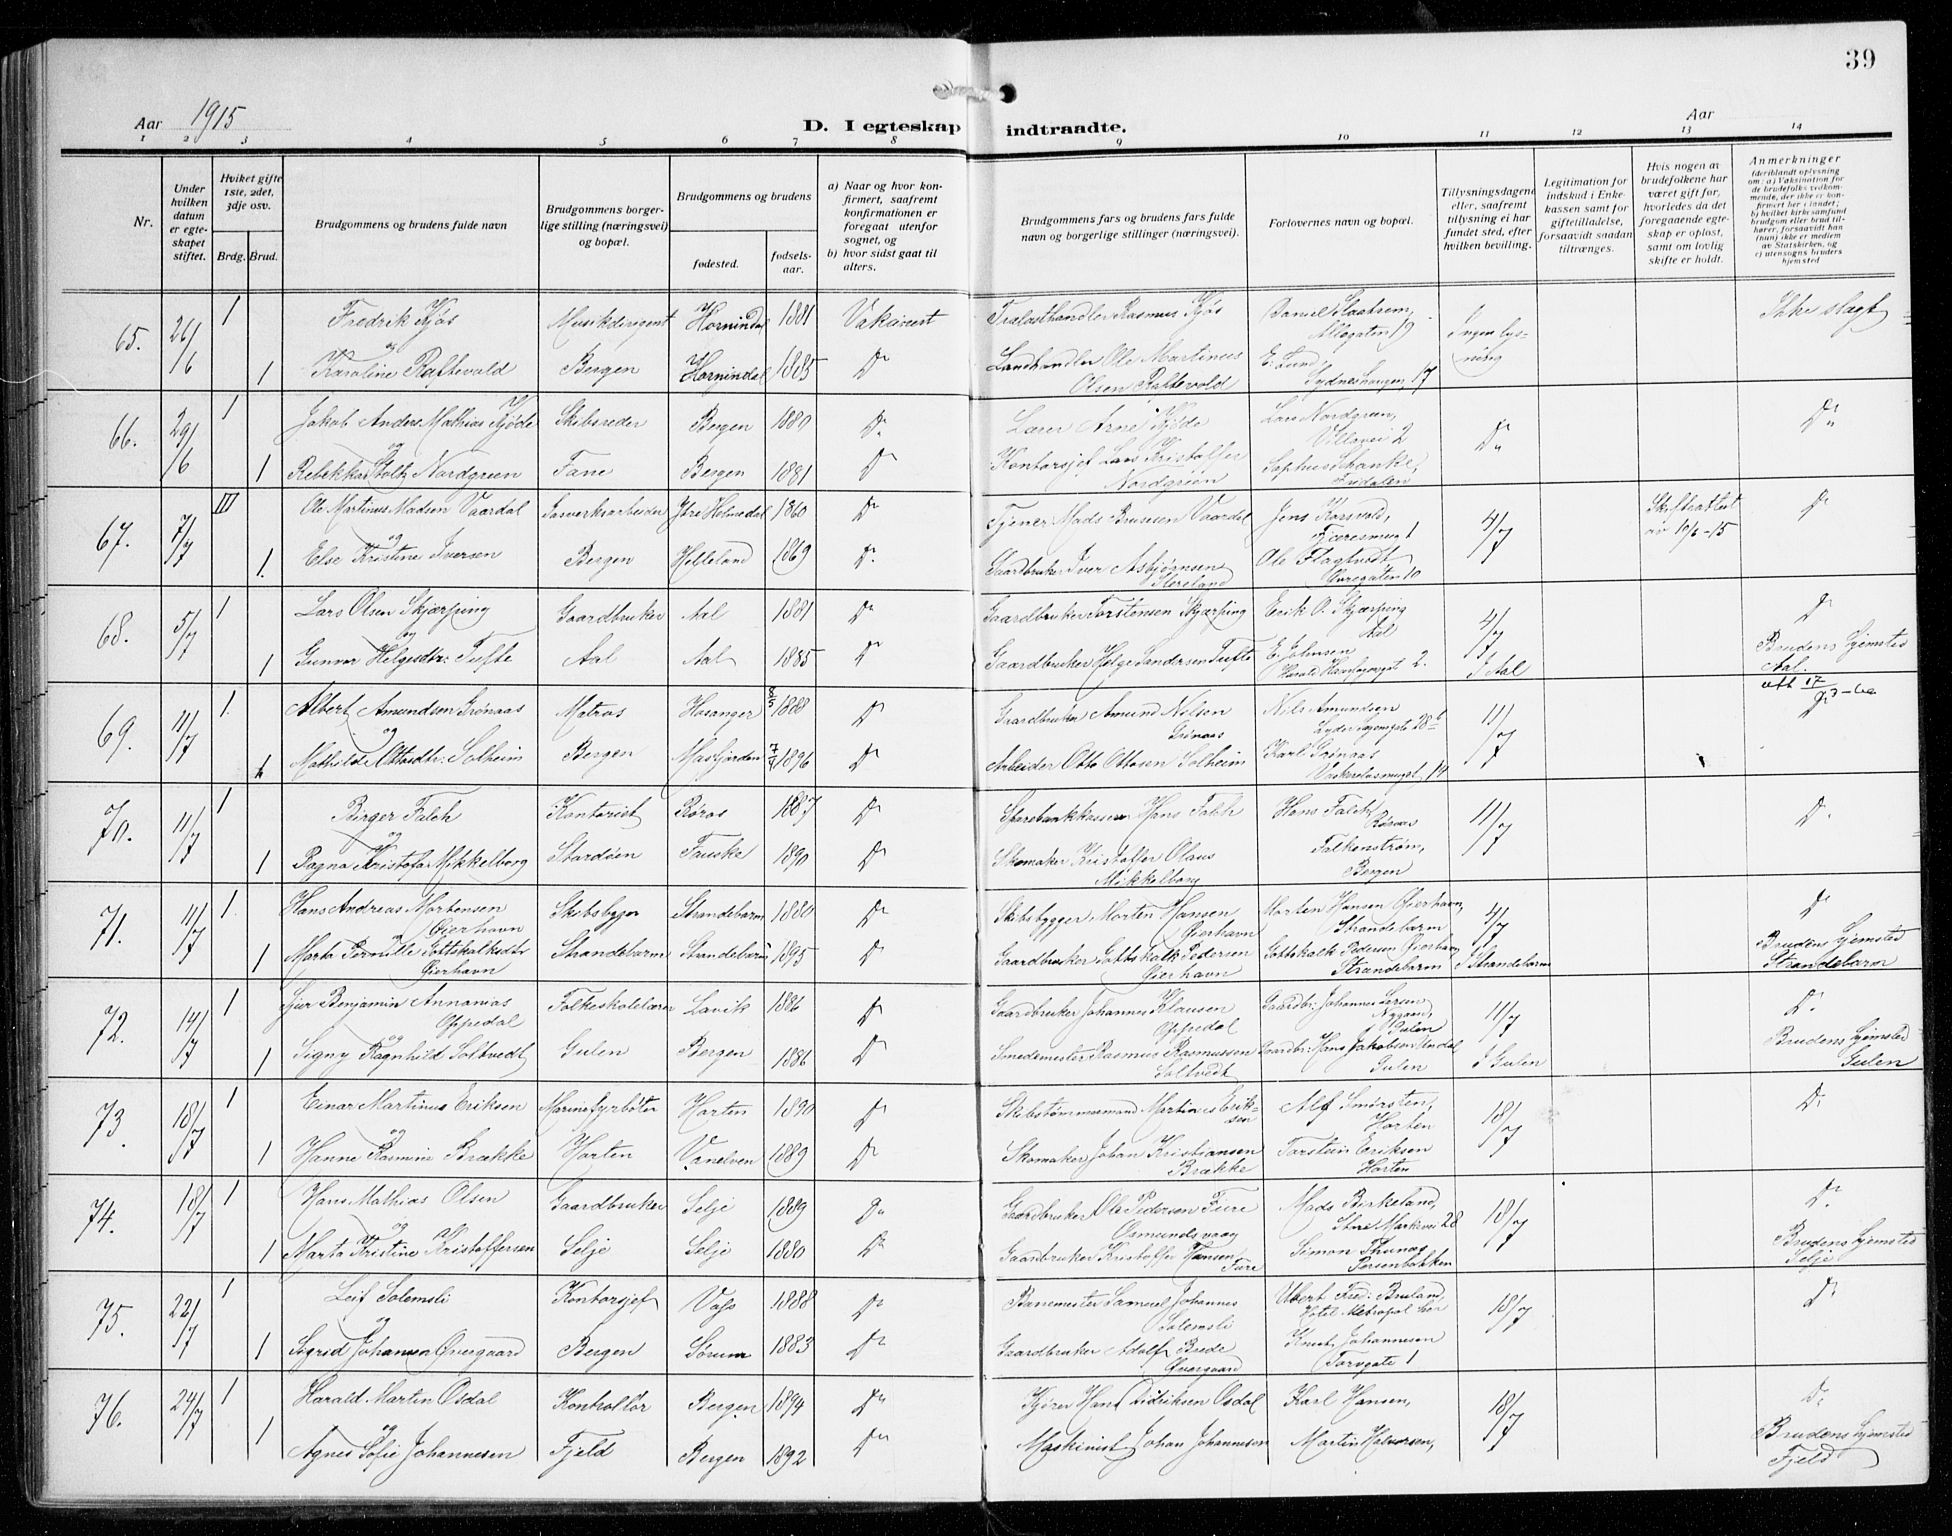 39
Aar 1915
D. I egteskap indtraadte.
Aar
1 2 3 4 5 6 7 8 9 10 11 12 13 14
Nr.
Under hvilken datum er egteskapet stiftet.
Hviket gifte 1ste, 2det, 3dje osv.
Brdg. Brud.
Brudgommens og brudens fulde navn
Brudgommens borgerlige stilling (næringsvei) og bopæl.
Brudgommens og brudens
fødested. fødselsaar.
a) Naar og hvor konfirmert, saafremt konfirmationen er foregaat utenfor sognet, og
b) hvor sidst gaat til alters.
Brudgommens fars og brudens fars fulde navn og borgerlige stillinger (næringsvei).
Forlovernes navn og bopæl.
Tillysningsdagene eller, saafremt tillysning ei har fundet sted, efter hvilken bevilling.
Legitimation for indskud i Enkekassen samt for giftetilladelse, forsaavidt saadan tiltrænges.
Hvis nogen av brudefolkene har været gift før, hvorledes da det foregaaende egteskap er opløst, samt om lovlig skifte er holdt.
Anmerkninger
(deriblandt oplysning om: a) Vaksination for de brudefolks vedkommende, der ikke er konfirmert her i landet; b) hvilket kirkesamfund brudgom eller brud tilhører, forsaavidt han (hun) ikke er medlem av Statskirken, og c) utensogns bruders hjemsted
65. 26/6 1 Fredrik Kjøs Musikdirigent Hornindal 1881 Vakcinert Tralasthandler Rasmus Kjøs Daniel Staahrem, Allegaten 19 Ingen lysning Ikke slagt
og
1 Karoline Raftevold Bergen Hornindal 1885 Do Landhandler Ole Martinus Olsen Raftevold E. Lund, Sydneshaugen 17
66. 29/6 1 Jakob Anders Mathias Kjøde Skibsreder Bergen 1880 Do Lærer Arne Kjøde Lars Nordgreen, Villavei 2 Do Do
og
1 Rebekka Stoltz Nordgreen Fane Bergen 1881 Do Kontorsjef Lars Kristoffer Nordgreen Sophus Schanke, Fridalen
67. 7/7 III Ole Martinus Madsen Vaardal Gasverksarbeider Ytre Holmedal 1860 Do Tjener Mads Vaardal Jens Korsvold, Fjæresmuget 1 4/7 Skifteattest av 10/6-15 Do
og
1. Else Kristine Iversen Bergen Helleland 1869 Do Gaardbruker Iver Asbjørnsen Ole Flagtvedt Øvregaten 10
68. 5/7 1 Lars Olsen Skjærping Gaardbruker Aal 1881 Do Gaardbruker Torstensen Skjærping Erik O. Skjærping Aal 4/7 Do
og
1 Gunvor Helgesdtr. Tufte Aal Aal 1885 Do Gaardbruker Helge Sandersen Tufte E. Johnsen Harald Haarfagresgt 2. I Aal Brudens hjemsted Aal.
69. 11/7 1. Albert Amundsen Grønaas Matros Hosanger 8/5 1888 Do Gaardbruker Amund Nilsen Grønaas Nils Amundsen 28 b 11/7 Do
og
1 Mathilde Ottosdtr. Solheim Bergen Masfjorden 1896 Do Arbeider Otto Ottosen Solheim Karl Grønaas 14
70. 11/7 1 Birger Falch Kontorist Røros 1887 Do Sparebankkasserer Hans Falch Hans Falch, Røraas 11/7 Do
og
1 Ragna Kristofa Mikkelborg Stardøen Fauske 1890 Do Skomaker Kristoffer Olaus Mikkelborg Falkenstrøm, Bergen
71. 11/7 1. Hans Andreas Mortensen Øierhavn Skibsbygger Strandebarm 1880 Do Skibsbygger Morten Hansen Øierhavn Morten Hansen Øierhavn, Strandebarm 4/7 Do
1 Marta Pernille Gottskalksdtr Øierhavn Strandebarm Strandebarm 1895 Do Gaardbruker Gottskalk Pedersen Øierhavn Gottskalk Pedersen Øierhavn Strandebarm I Strandebarm Brudens hjemsted Strandebarm
72. 14/7 1 Benjamin Annanias Oppedal Folkeskolelærer Lavik 1886 Do Gaardbruker Johannes Klausen Oppedal Gaardbr. Johannes Nygaard, Gulen 11/7 Do
og
1 Signy Ragnhild Soltvedt Gulen Bergen 1886 Do Smedemester Rasmus Rasmussen Soltvedt Gaardbr. Hans Jakobsen Undal Gulen I Gulen Brudens hjemsted Gulen
73. 18/7 1 Einar Martinus Eriksen Marinefyrbøter Horten 1890 Do Skibstømmermand Martinus Eriksen Alf Smørsten, Horten 18/7 Do
og
1 Hanne Rasmine Brække Horten Vanelven 1889 Do Skomaker Johan Kristiansen Brække Torstein Eriksen Horten
74. 18/7 1 Hans Mathias Olsen Gaardbruker Selje 1889 Do Gaardbruker Ole Pedersen Fure Osmundsvaag Mads Birkeland, Store Markevei 28 18/7 Do
og
1 Marta Kristine Kristoffersen Selje Selje 1880 Do Gaardbruker Kristoffer Hansen Fure Simon Thunes Persenbakken Brudens hjemsted Selje
75. 22/7 1 Leif Solemsli Kontorsjef Vags 1888 Do Banemester Samuel Johannes Solemsli Fred. Bruland Hotel Metropol her 18/7 Do
og
1 Sigrid Johansen Øvergaard Bergen Sørum 1883 Do Gaardbruker Adolf Brede Øvergaard Knut Johannesen Torvgate 1
76. 24/7 1 Harald Martin Osdal Kontrollør Bergen 1894 Do Kjører Hans Didriksen Osdal Karl Hansen, 18/7 Do
og
1 Agnes Sofie Johannesen Fjeld Bergen 1892 Do Maskinist Johan Johannesen Martin Halvorsen, Brudens hjemsted Fjeld